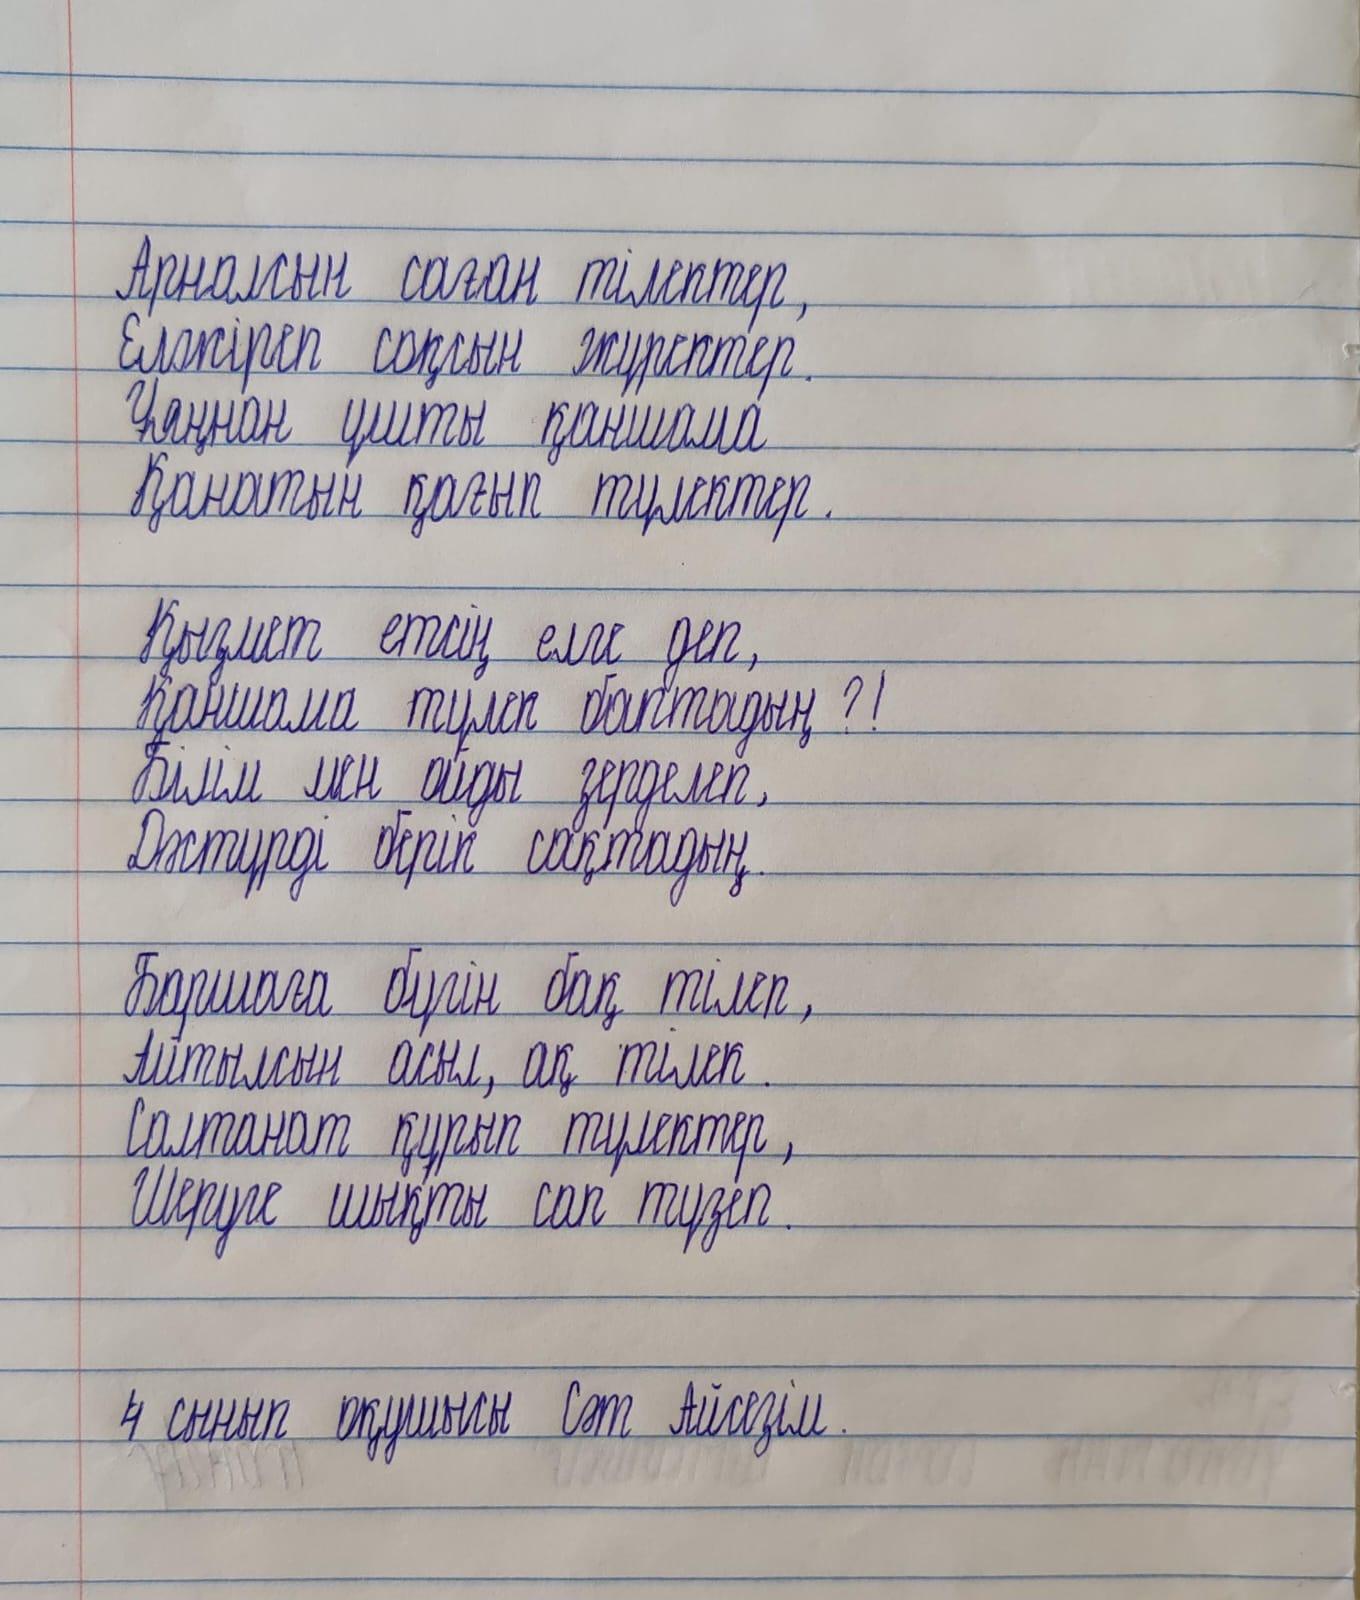 Арналсын саған тілектер,
Елжіреп соқсын жүректер.
Ұяңнан ұшты қаншама
Қанатын қағып түлектер.
Қызмет етсің елге деп,
Қаншама түлек баптадың?!
Білім мен ойды зерделеп,
Дәстүрді берік сақтадың.
Баршаға бүгін бақ тілеп,
Айтылсын асыл, ақ тілек.
Салтанат құрып түлектер,
Шеруге шықты сап түзеп.
4 сынып оқушысы Сәт Айсезім.